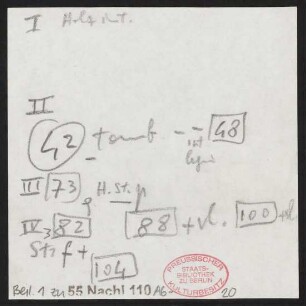 I Holz
II
42 tamb. -- 48
III 73 H.St. p
IV 82 88 + Vl. 100 + Vl
Str f +
104
PREUSSISCHER STAATS-BIBLIOTHEK ZU BERLIN KULTURBESITZ
Beil. 1 zu 55 Nachl 110 A6 20